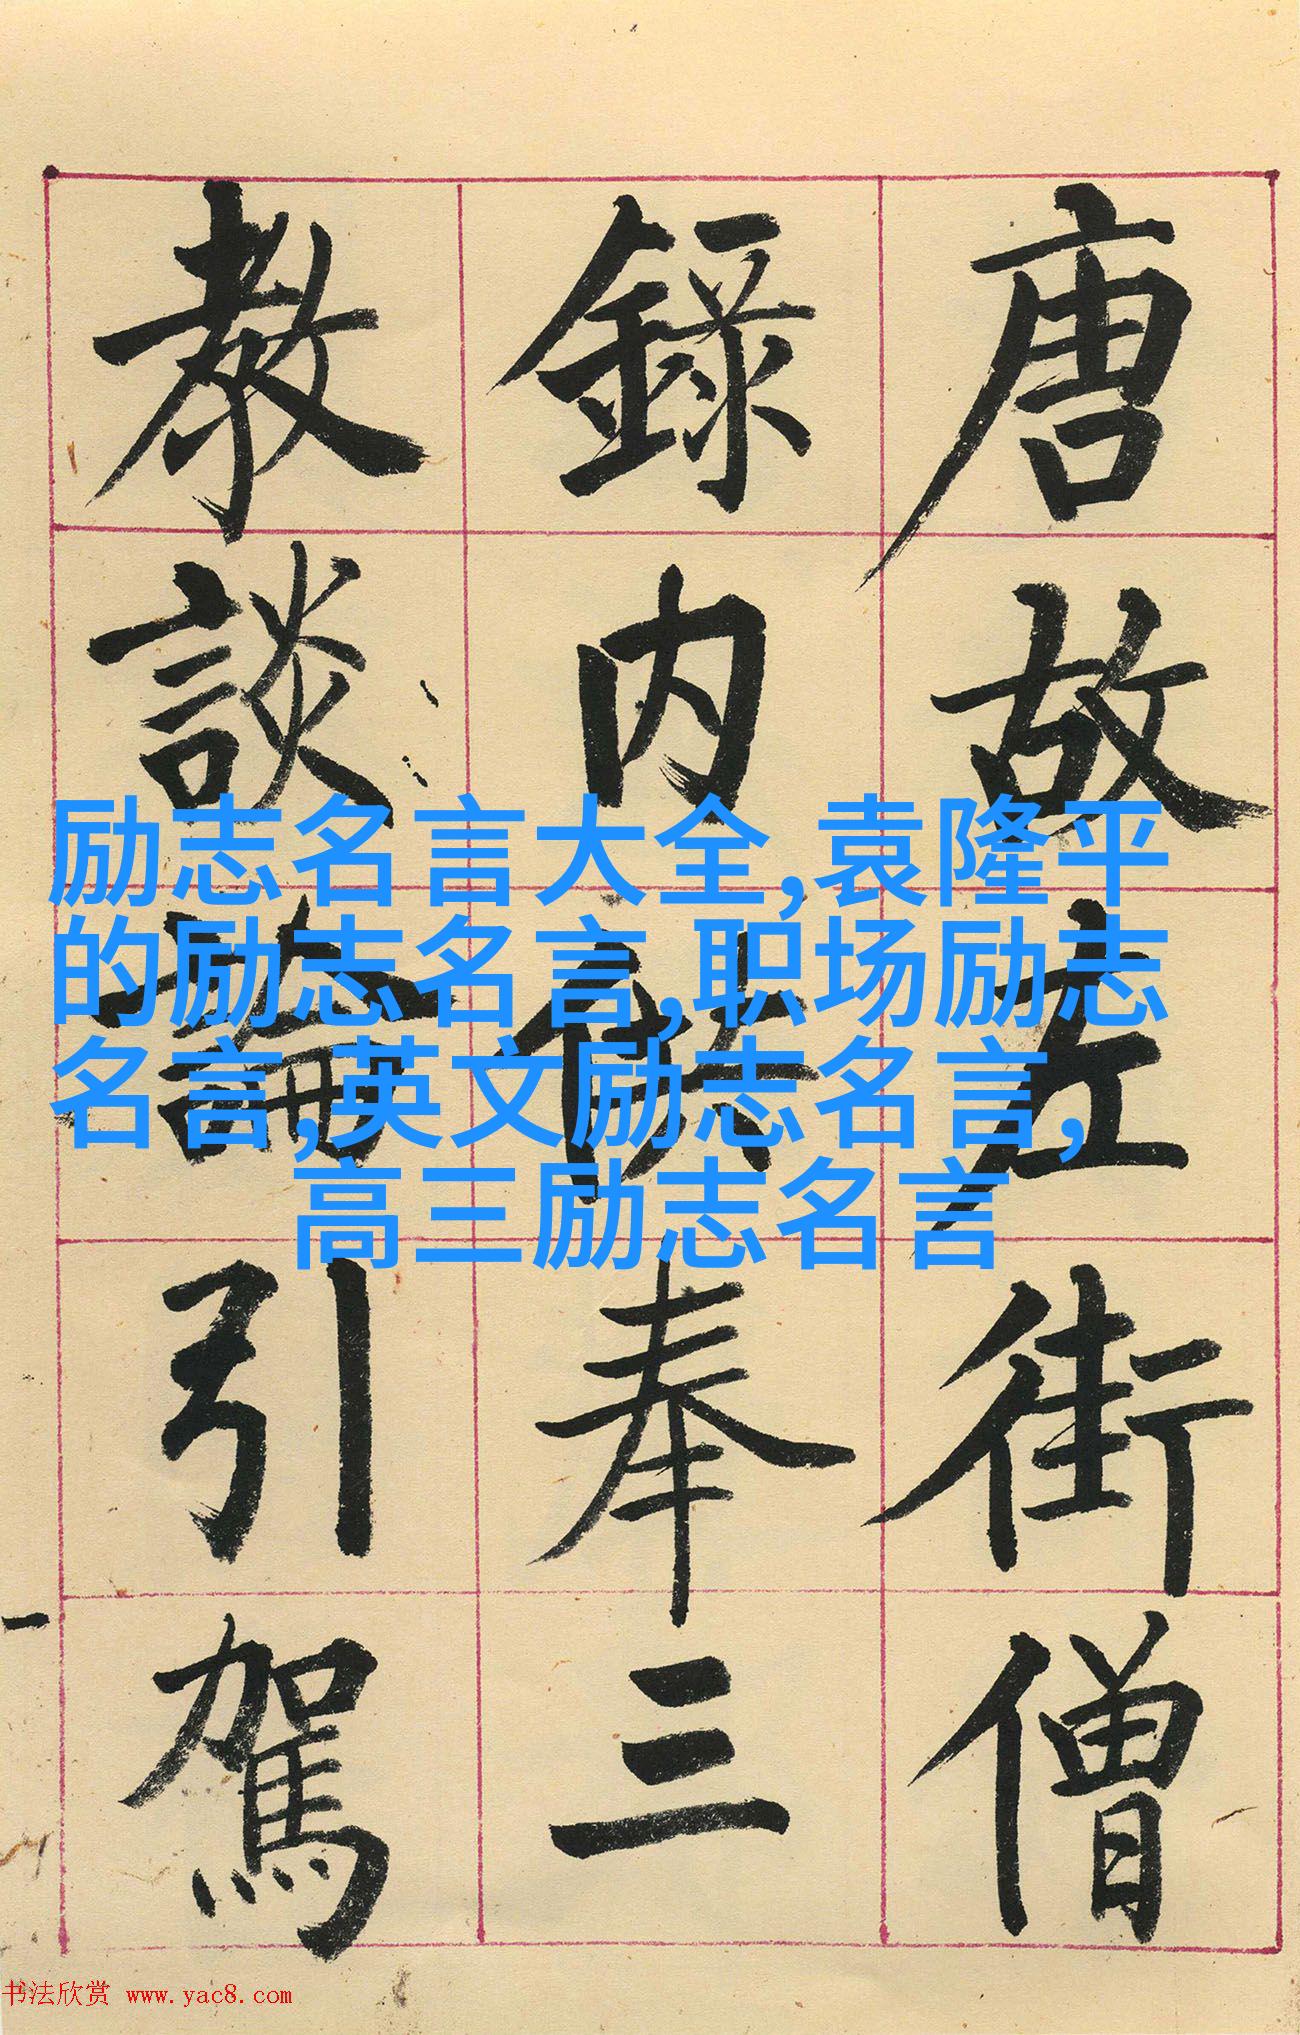 唐故左街僧
錄內供奉三
教談論引駕
励志名言大全,袁隆平
的励志名言,职场励志
名言,英文励志名言,
高三励志名言
书法欣赏 www.yac8.com